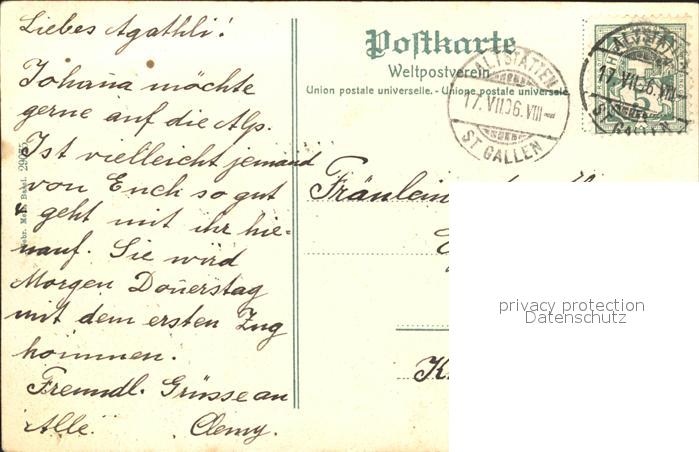 Liebes Agathli!
Johana möchte
gerne auf die Alp.
Ist vielleicht jemand
von Euch so gut
geht mit ihr hie-
nauf. Sie wird
Morgen Donerstag
mit dem ersten Zug
kommen.
Freundl. Grüsse an
Alle. Clemy.
Postkarte
Weltpostverein
Union postale universelle. - Unione postale universale.
ALTSTÄTTEN
17.VII.06.VIII–
ST GALLEN
ALTSTÄTTEN
17.VII.06.VIII–
ST GALLEN
Fräulein
K
privacy protection
Datenschutz